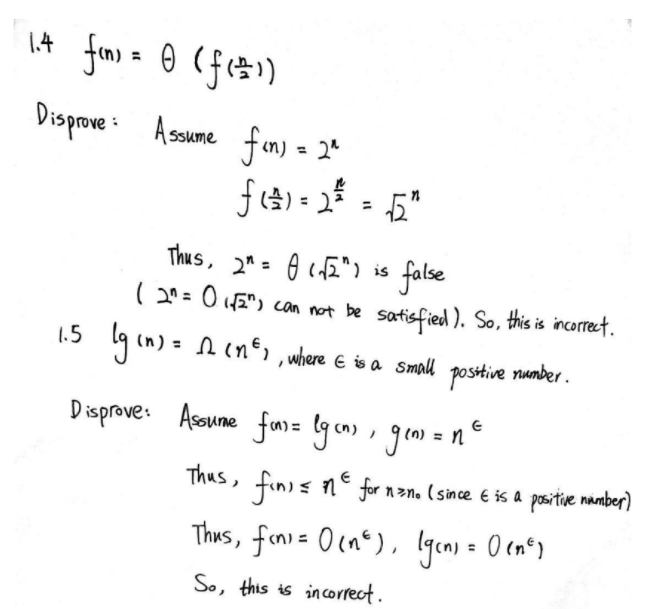 1.4 f(n) = θ (f(n/2))
Disprove: Assume f(n) = 2ⁿ
f(n/2) = 2^(n/2) = √2ⁿ
Thus, 2ⁿ = θ (√2ⁿ) is false
( 2ⁿ = O (√2ⁿ) can not be satisfied ). So, this is incorrect.
1.5 lg (n) = Ω (n^ϵ), where ϵ is a small positive number.
Disprove: Assume f(n) = lg (n), g(n) = n^ϵ
Thus, f(n) ≤ n^ϵ for n≥n₀ (since ϵ is a positive number)
Thus, f(n) = O(n^ϵ), lg(n) = O(n^ϵ)
So, this is incorrect.